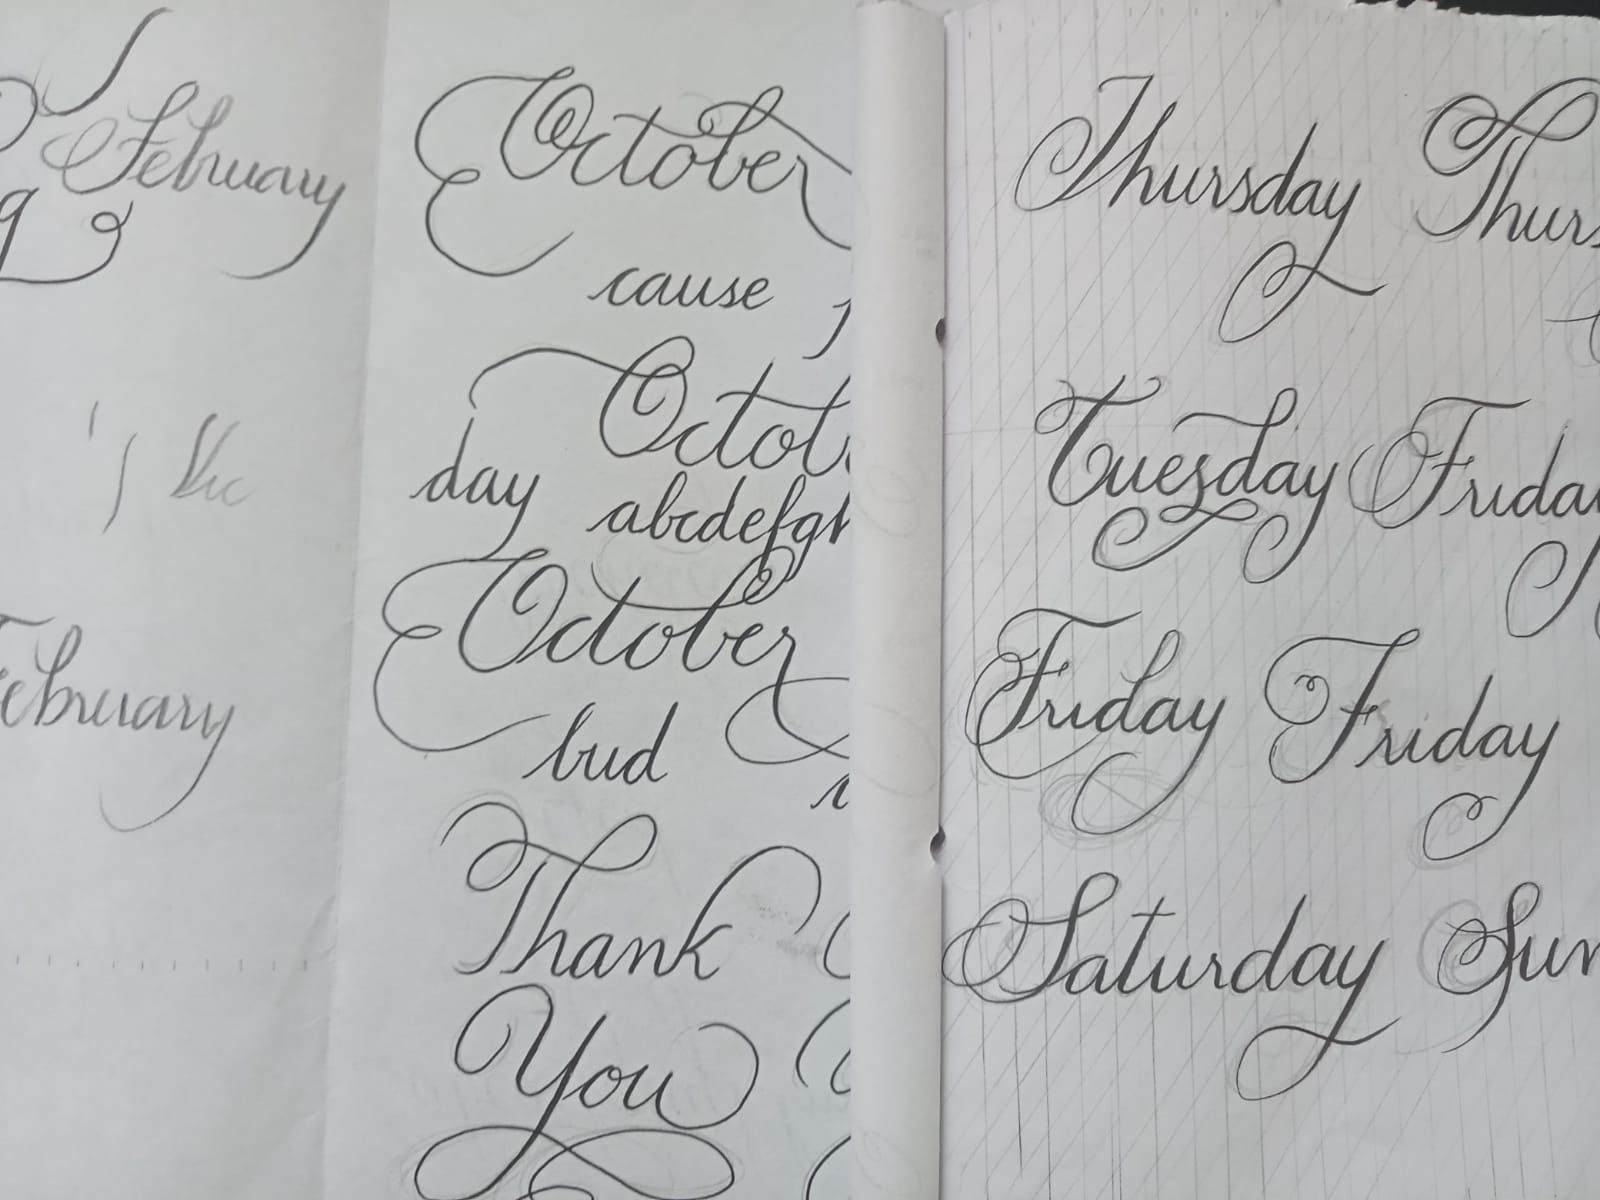 February
g
February
October
cause
Octob
day abcdefgh
October
bud
Thank
You
Thursday Thurs
Tuesday Friday
Friday Friday
Saturday Sun